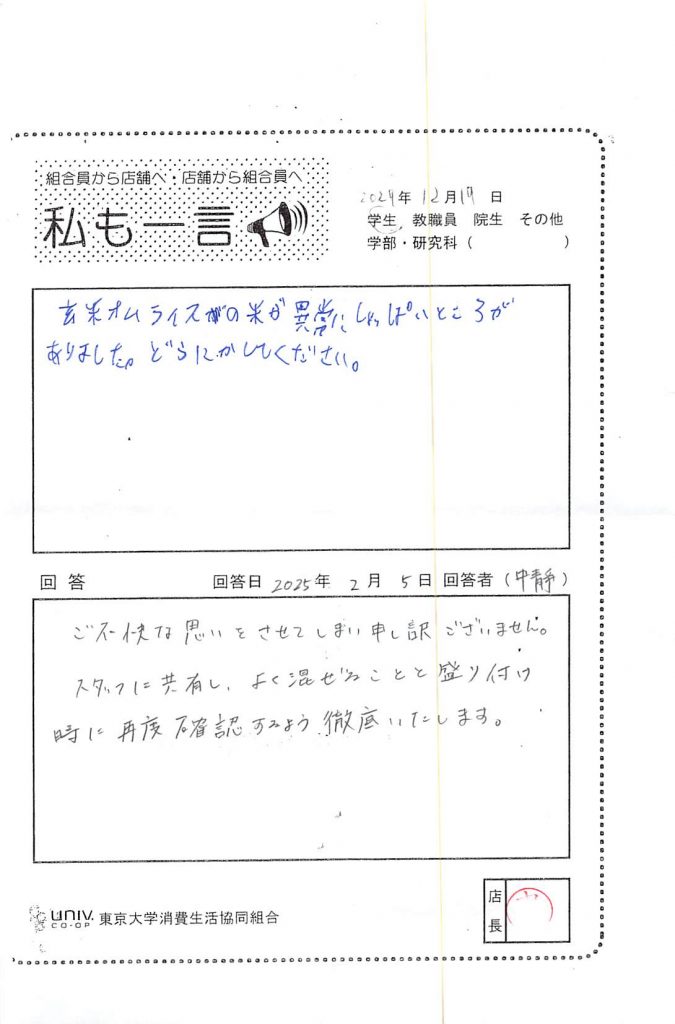 組合員から店舗へ・店舗から組合員へ
私も一言
2024年 12月19日
学生 教職員 院生 その他
学部・研究科( )
玄米オムライスの米が異常にしょっぱいところが
ありました。どうにかしてください。
回答 回答日 2025年 2月 5日 回答者(中靜)
ご不快な思いをさせてしまい申し訳ございません。
スタッフに共有し、よく混ぜることと盛り付け
時に再度確認するよう徹底いたします。
店長
UNIV. CO-OP 東京大学消費生活協同組合